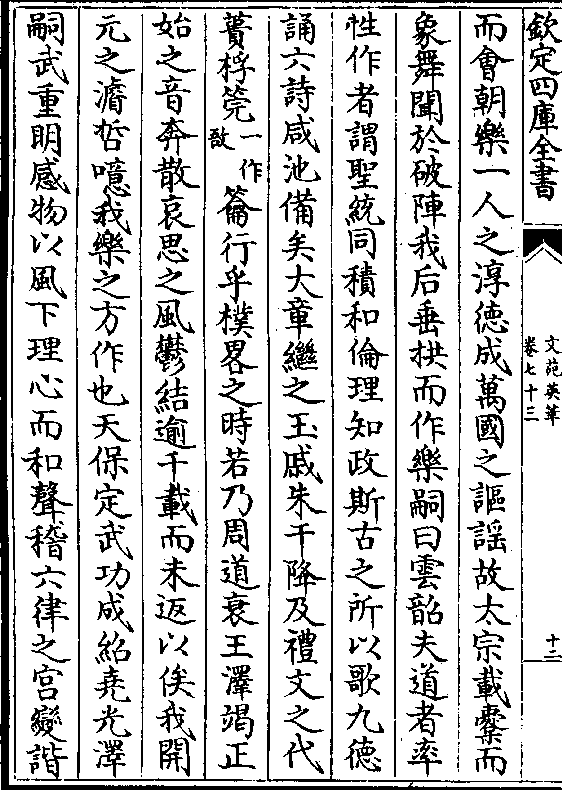 欽定四庫全書
文苑英華
卷七十三
十二
而會朝樂一人之淳德成萬國之謳謡故太宗載櫜而
象舞聞於破陣我后垂拱而作樂嗣曰雲韶夫道者率
性作者謂聖統同積和倫理知政斯古之所以歌九德
誦六詩咸池備矣大章繼之玉戚朱干降及禮文之代
蕢桴筦一作㪣籥行乎樸畧之時若乃周道衰王澤竭正
始之音奔散哀思之風鬱結逾千載而未返以俟我開
元之濬哲噫我樂之方作也天保定武功成紹堯光澤
嗣武重明感物以風下理心而和聲稽六律之宫變諧